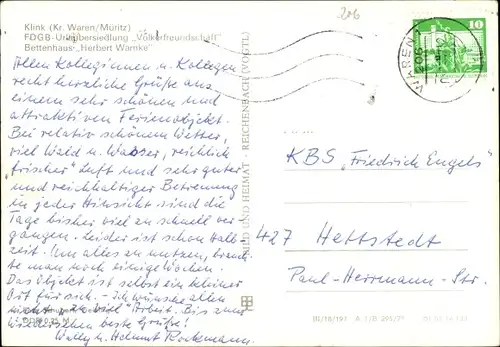 Klink (Kr. Waren/Müritz)
FDGB-Urlaubersiedlung „Völkerfreundschaft"
Bettenhaus „Herbert Warnke"
Allen Kolleginnen u. Kollegen
recht herzliche Grüße aus
einem sehr schönen und
attraktiven Ferienobjekt.
Bei relativ schönem Wetter,
viel Wald u. Wasser, reichlich
„frischer" Luft und sehr guter
und reichhaltiger Betreuung
in jeder Hinsicht sind die
Tage bisher viel zu schnell ver-
gangen. Leider ist schon Halb-
zeit. Um alles zu nutzen, brauch-
te man noch einige Wochen.
Das Objekt ist selbst ein kleiner
Ort für sich. – Ich wünsche allen
nicht „zu viel" Arbeit. Bis zum
Wiedersehen beste Grüße!
Wally u. Helmut
BILD UND HEIMAT · REICHENBACH (VOGTL)
206
WAREN 1
10
KBS „Friedrich Engels"
427 Hettstedt
Paul-Herrmann-Str.
A 1/B 295/75